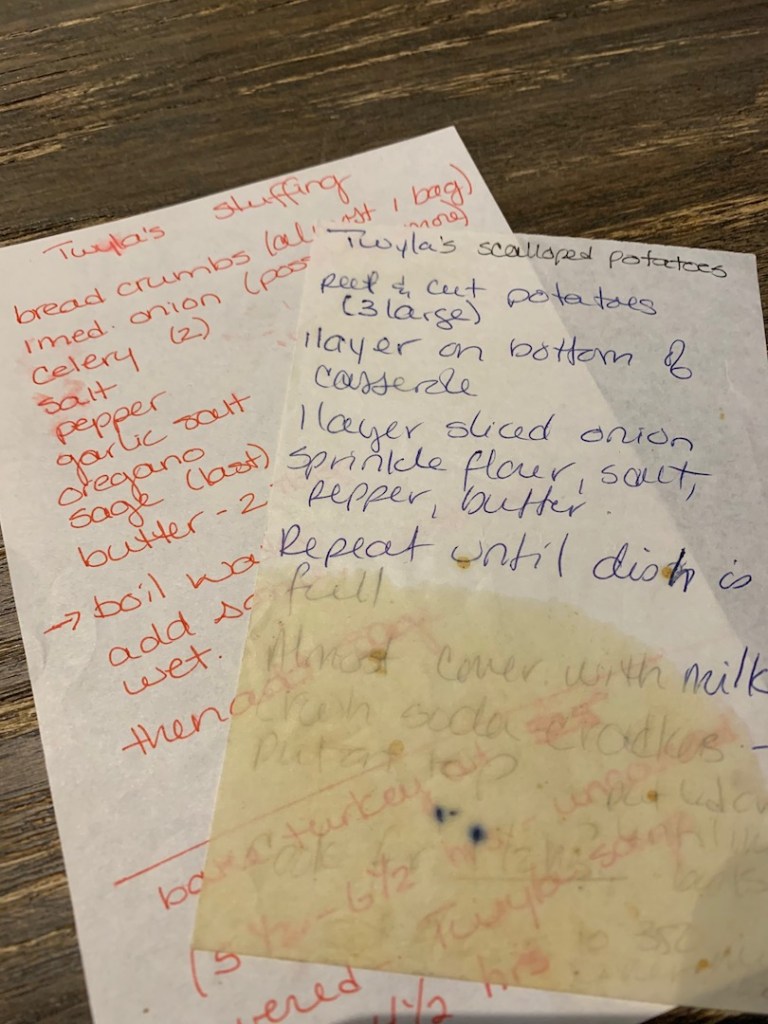 Twyla's stuffing
bread crumbs (al st 1 bag)
1 med. onion (poss more)
celery (2)
salt
pepper
garlic salt
oregano
sage (last)
butter - 2
→ boil wa
add
wet.
then
bake turkey
(5 1/2 - 6 1/2 hrs
vered
1/2 hrs
Twyla's scalloped potatoes
peel & cut potatoes
(3 large)
1 layer on bottom of
casserole
1 layer sliced onion
sprinkle flour, salt,
pepper, butter.
Repeat until dish is
full.
Almost cover with milk
Crush soda crackers -
Put at top
for
350